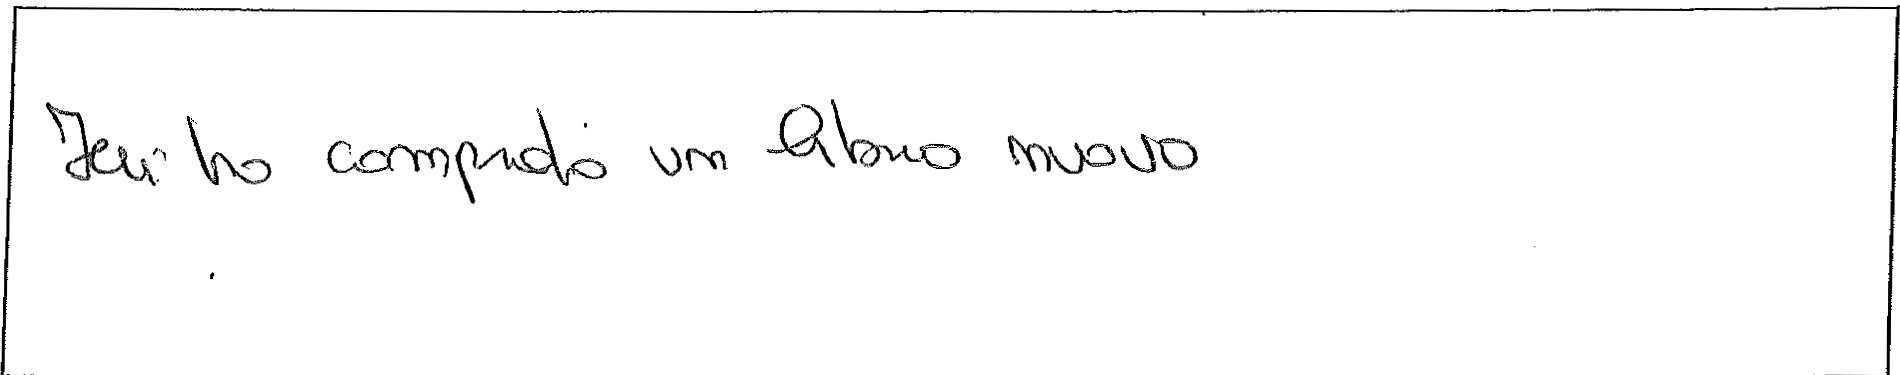 Ieri ho comprato un libro nuovo